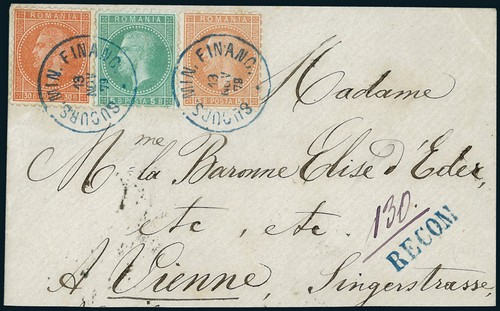 ROMANIA
ROMANIA
ROMANIA
MIN. FINANC.
13
NOV
BUCURS
MIN. FINANC.
13
NOV
78
BUCURS
5 B POSTA 5 B
Madame
Mme la Baronne Elise d'Eder,
etc, etc.
130.
RECOM
A Vienne, Singerstrasse,